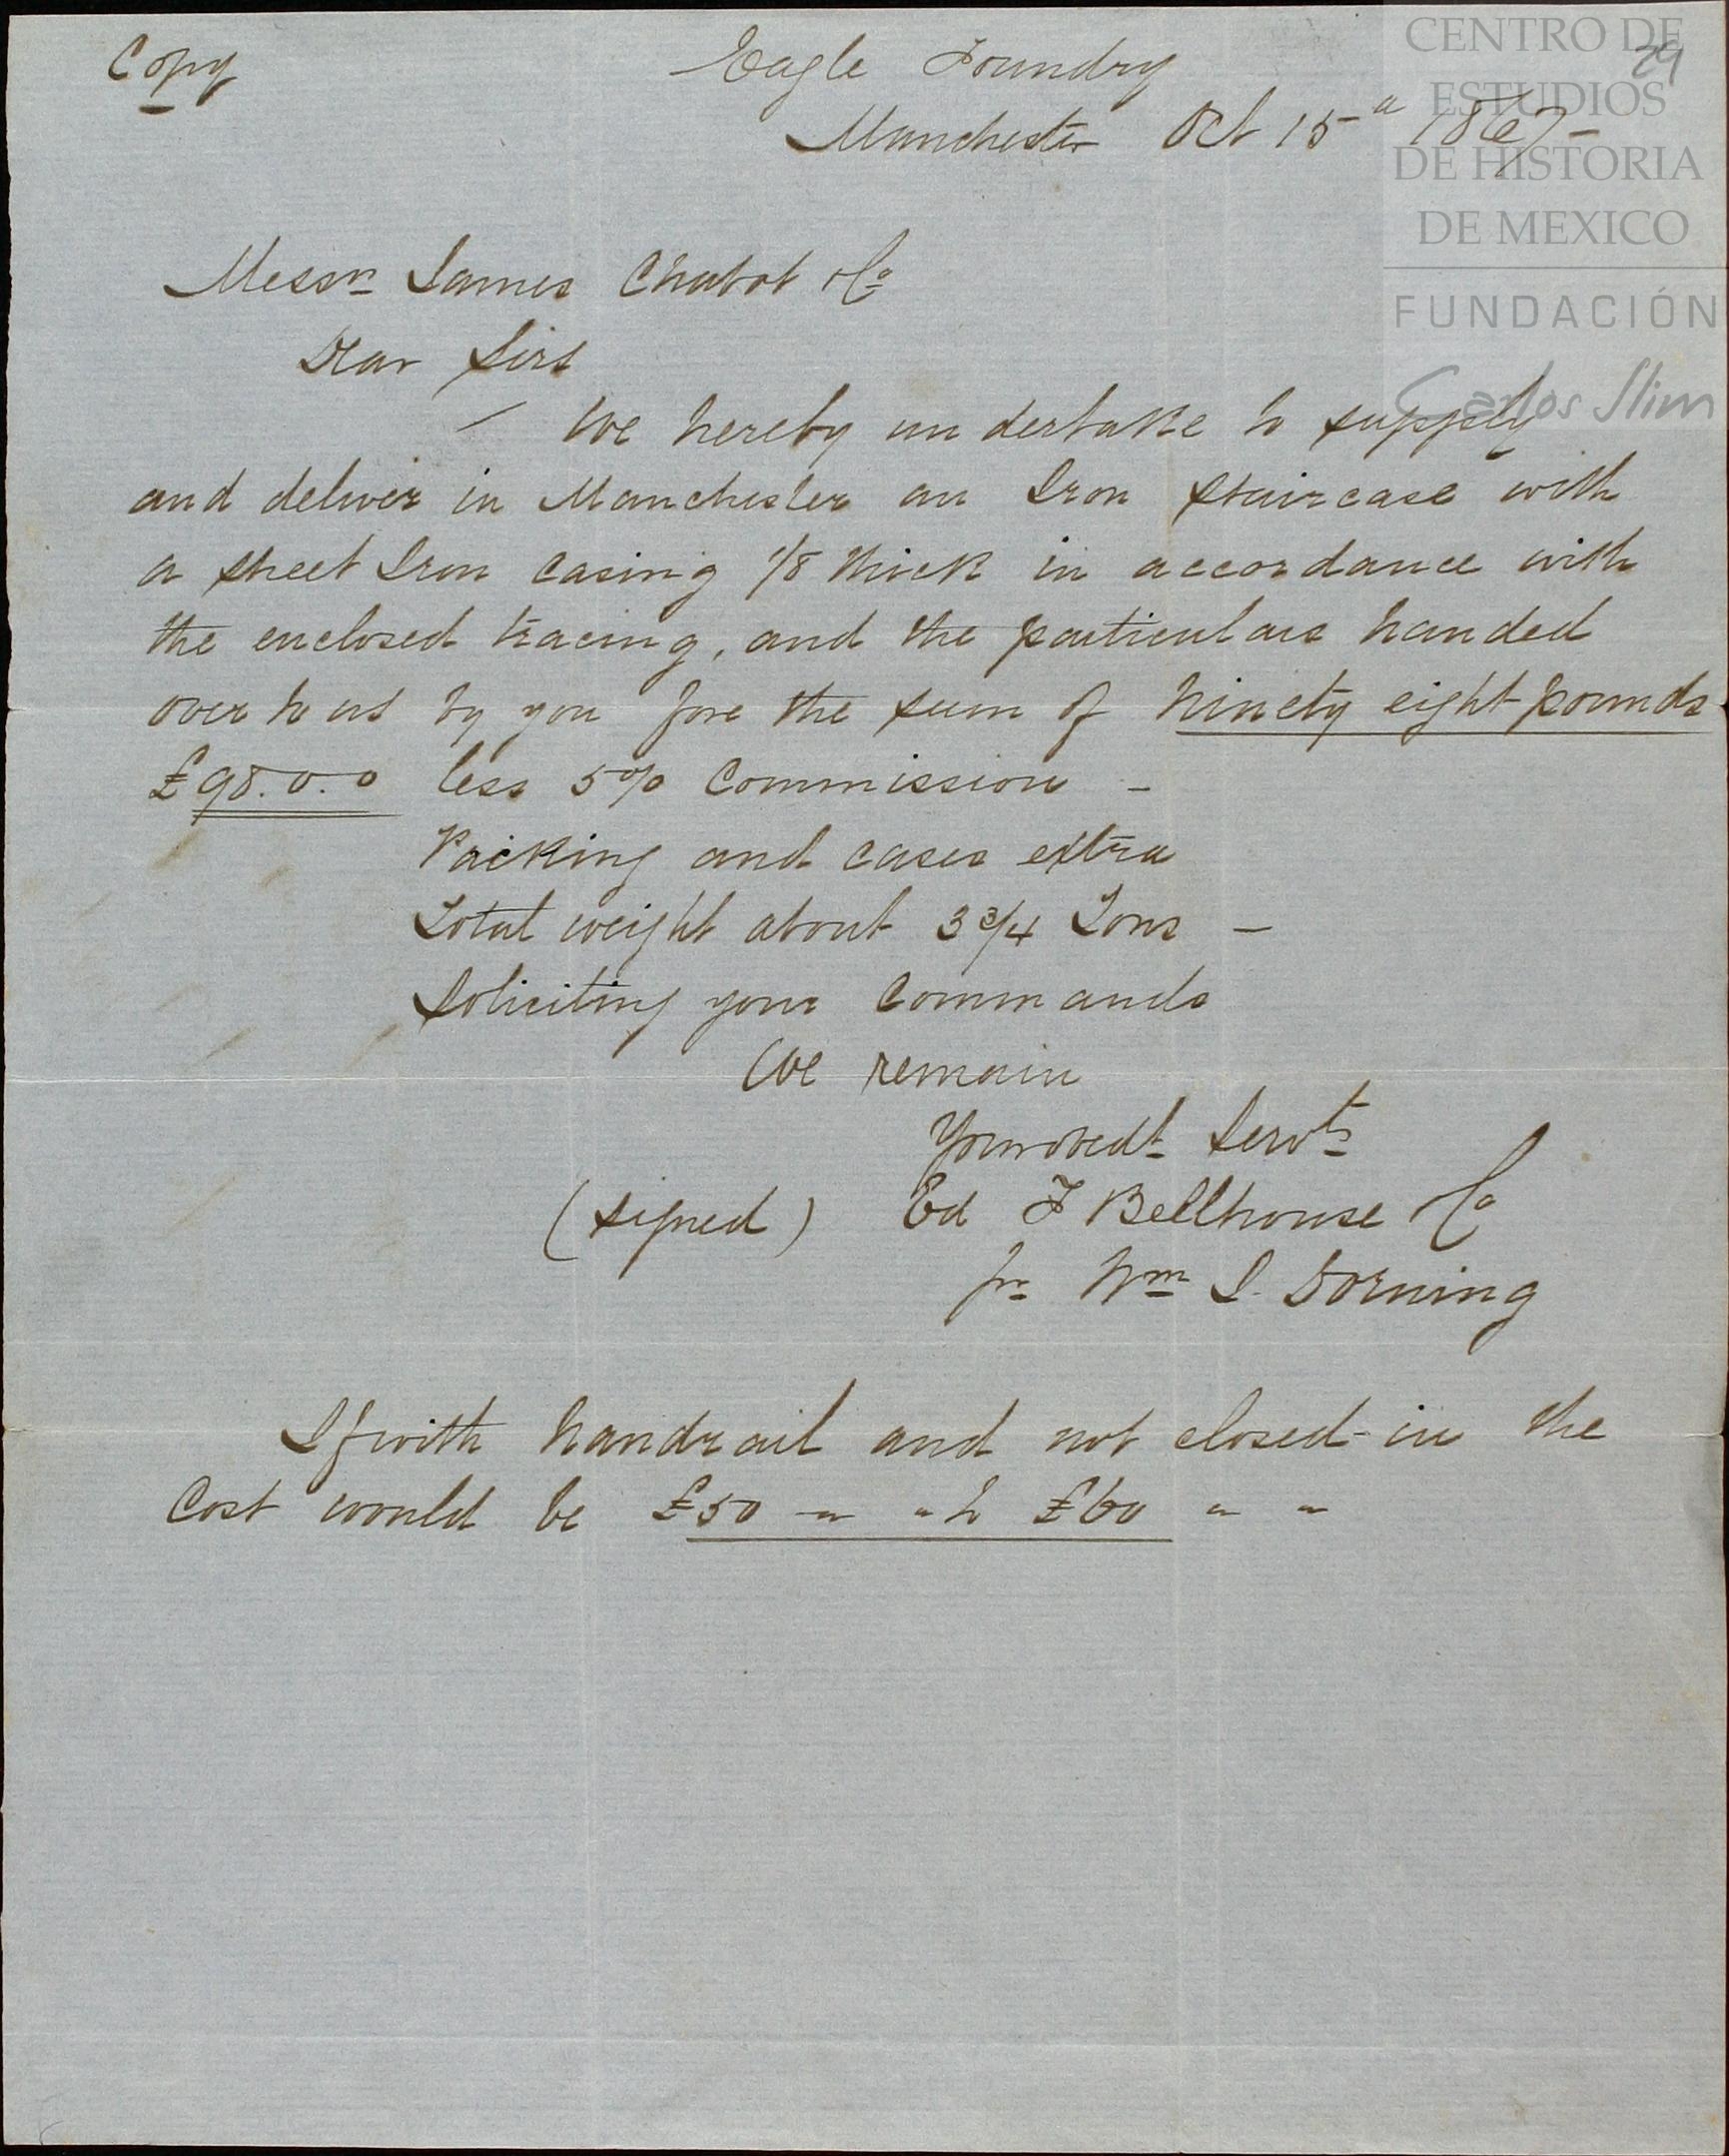 Copy
Eagle Foundry
29
Manchester Oct 15th 1867-
CENTRO DE
ESTUDIOS
DE HISTORIA
DE MEXICO
FUNDACIÓN
Carlos Slim
Messrs James Chabot & Co
Dear Sirs
We hereby undertake to supply
and deliver in Manchester an Iron staircase with
a sheet Iron casing 1/8 thick in accordance with
the enclosed tracing, and the particulars handed
over to us by you for the sum of Ninety eight pounds
£98.0.0 less 5% Commission -
Packing and cases extra
Total weight about 3 3/4 Tons -
Soliciting your Commands
We remain
Your obedt Servts
(signed) Ed T Bellhouse & Co
pr Wm I. Dorning
If with handrail and not closed-in the
Cost would be £50 " " to £60 " "